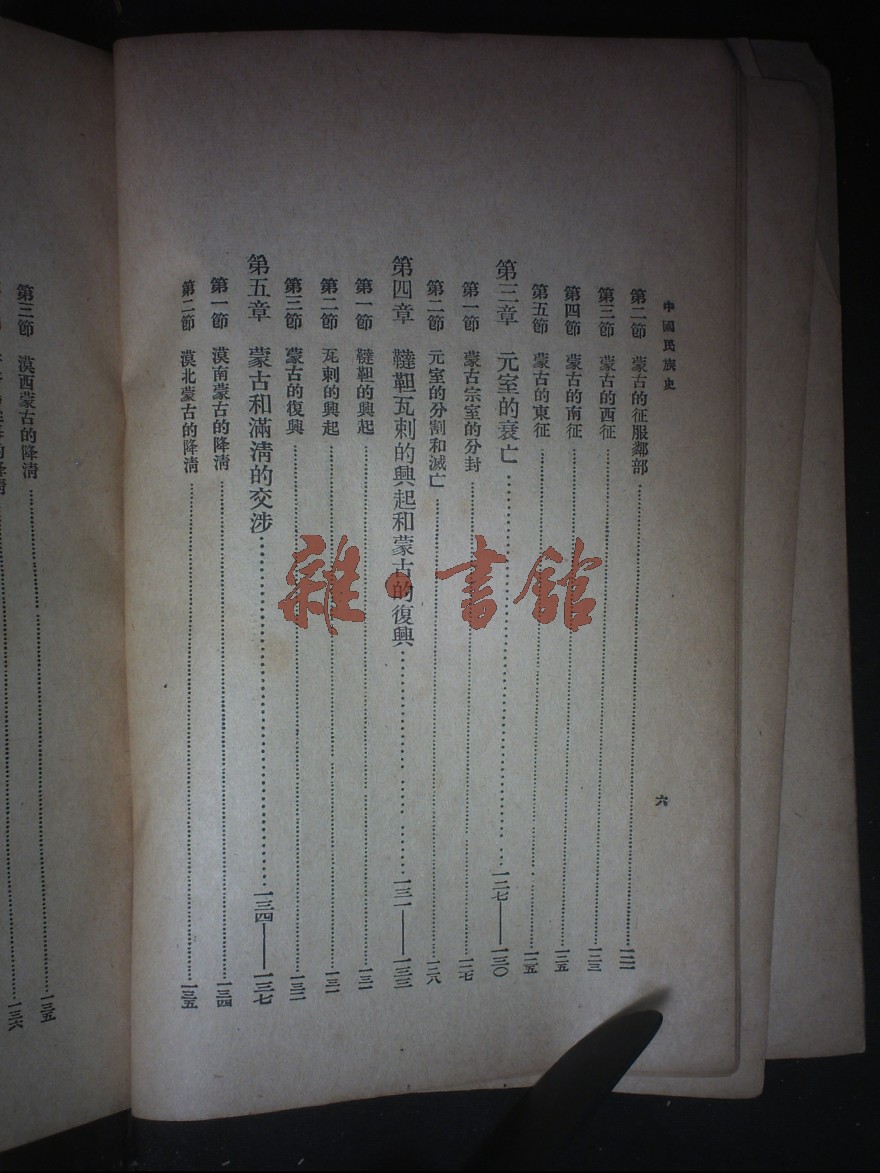 中國民族史
六
第二節 蒙古的征服鄰部……一二二
第三節 蒙古的西征……一二三
第四節 蒙古的南征……一二五
第五節 蒙古的東征……一二五
第三章 元室的衰亡……一二七——一三〇
第一節 蒙古宗室的分封……一二七
第二節 元室的分割和滅亡……一二八
第四章 韃靼瓦刺的興起和蒙古的復興……一三一——一三三
第一節 韃靼的興起……一三一
第二節 瓦刺的興起……一三一
第三節 蒙古的復興……一三二
第五章 蒙古和滿清的交涉……一三四——一三七
第一節 漠南蒙古的降清……一三四
第二節 漠北蒙古的降清……一三五
第三節 漠西蒙古的降清……一三五
一三六
雜·書館